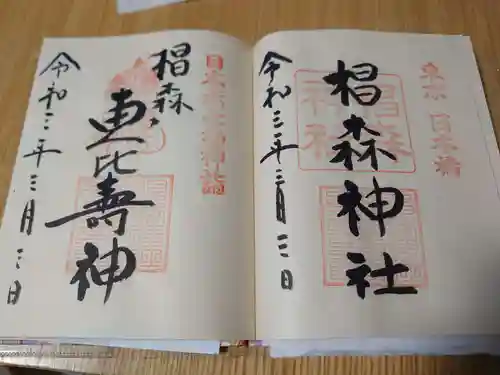 東京 日本橋
椙森神社
椙森
神社
令和三年三月三日
椙森
恵比壽神
令和三年三月三日